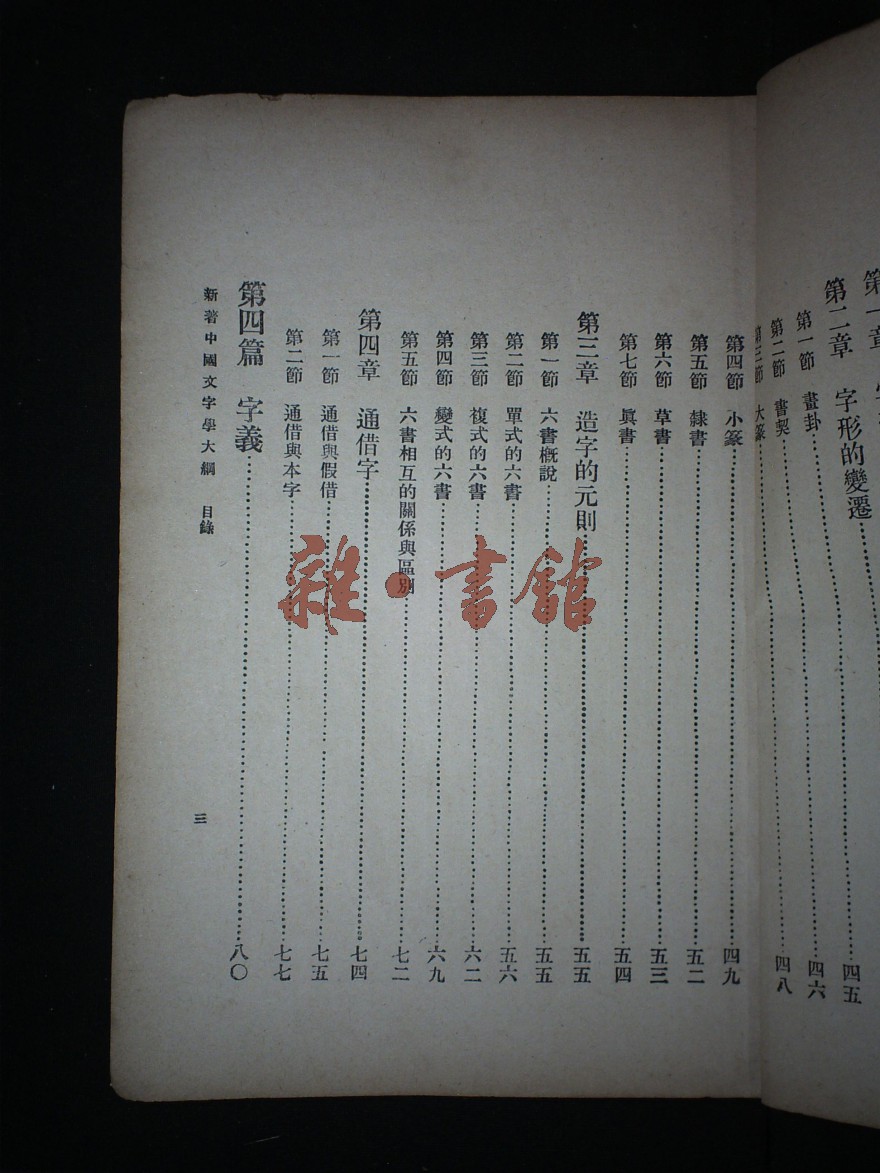 第二章 字形的變遷……四五
第一節 畫卦……四六
第二節 書契……四八
第三節 大篆……
第四節 小篆……四九
第五節 隸書……五二
第六節 草書……五三
第七節 眞書……五四
第三章 造字的元則……五五
第一節 六書槪說……五五
第二節 單式的六書……五六
第三節 複式的六書……六二
第四節 變式的六書……六九
第五節 六書相互的關係與區別……七二
第四章 通借字……七四
第一節 通借與假借……七五
第二節 通借與本字……七七
第四篇 字義……八〇
新著中國文字學大綱 目錄
三
雜·書館